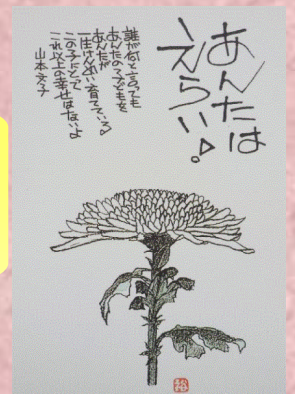 あんたは
えらい!。
誰が何と言っても
あんたの子どもを
あんたが
一生けんめい育てている
この子にとって
これ以上の幸せはないよ